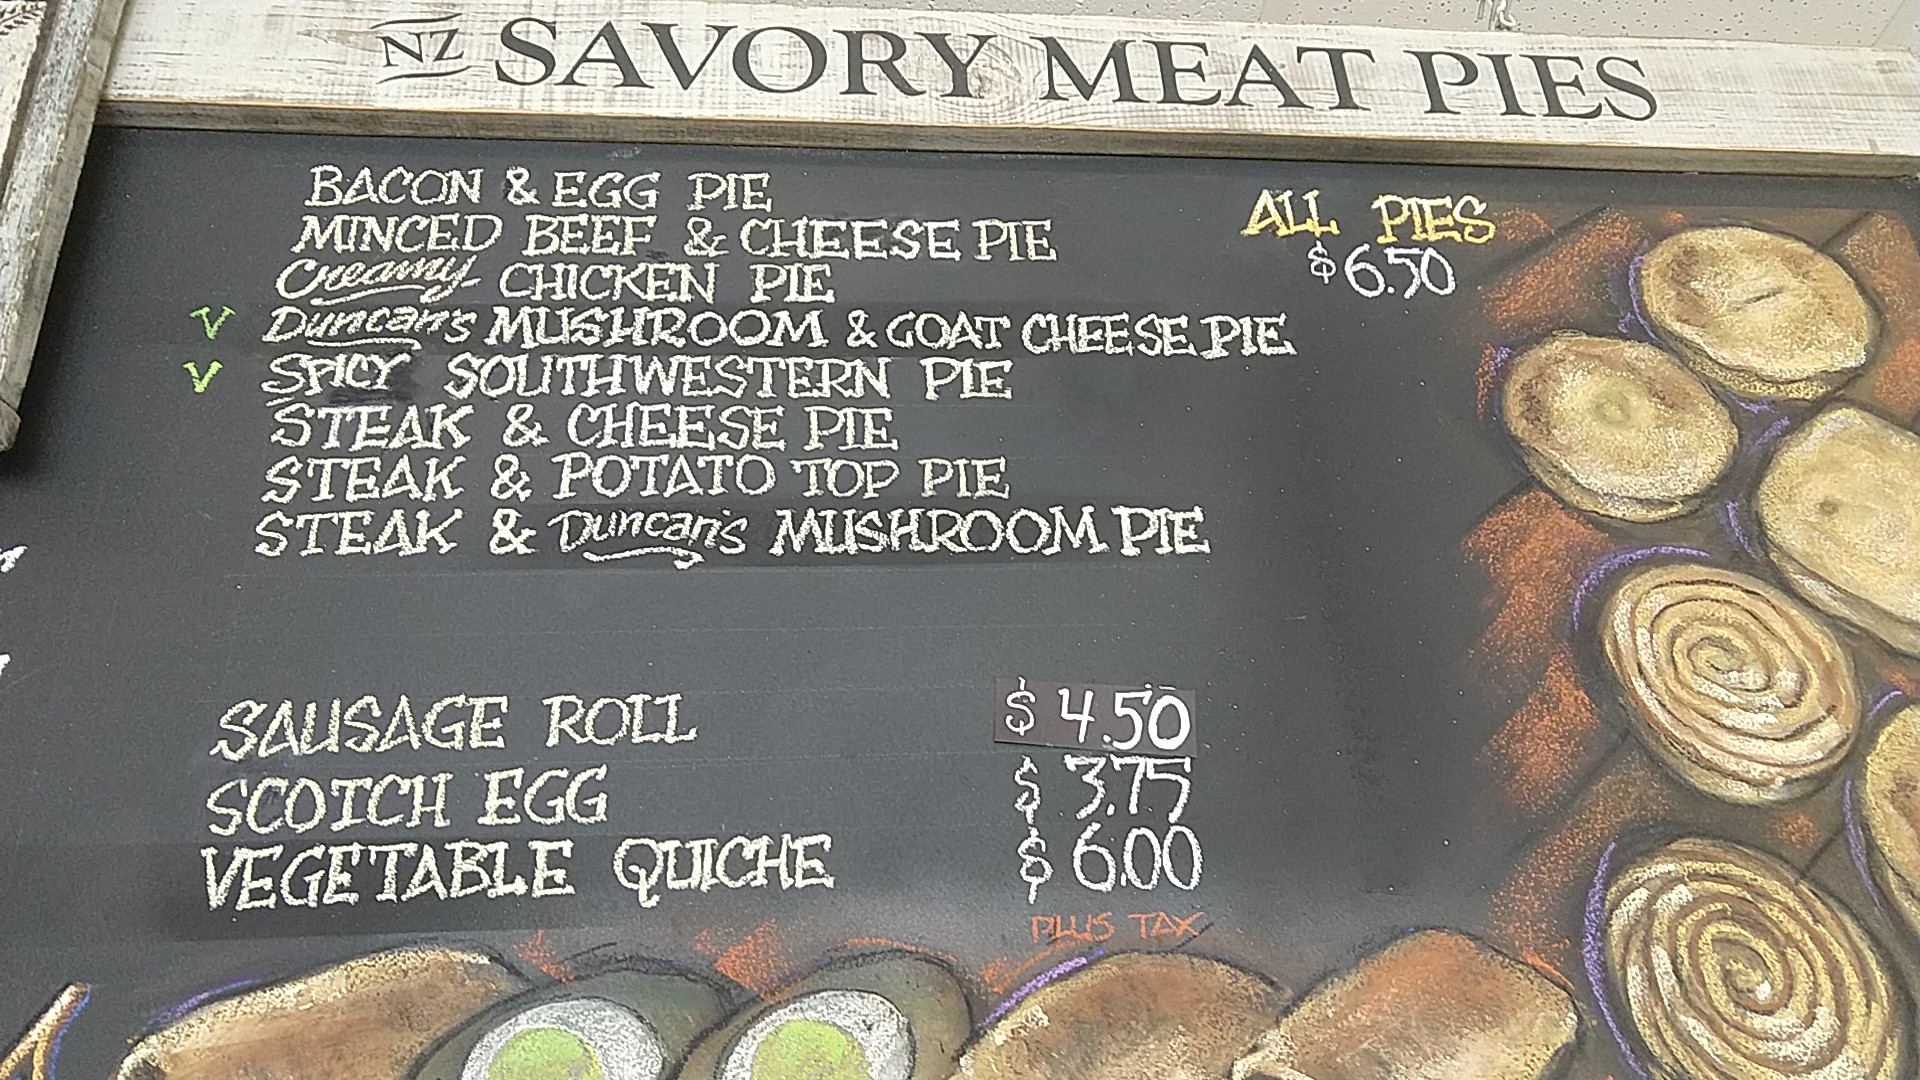 NZ SAVORY MEAT PIES
BACON & EGG PIE
MINCED BEEF & CHEESE PIE
Creamy CHICKEN PIE
V Duncan's MUSHROOM & GOAT CHEESE PIE
V SPICY SOUTHWESTERN PIE
STEAK & CHEESE PIE
STEAK & POTATO TOP PIE
STEAK & Duncan's MUSHROOM PIE
ALL PIES
$6.50
SAUSAGE ROLL $4.50
SCOTCH EGG $3.75
VEGETABLE QUICHE $6.00
PLUS TAX